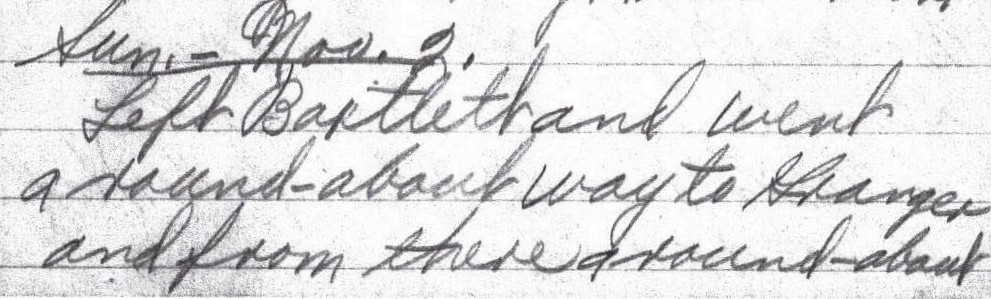 Sun. - Nov. 2.
Left Bartlett and went
a round-about way to Granger
and from there a round-about